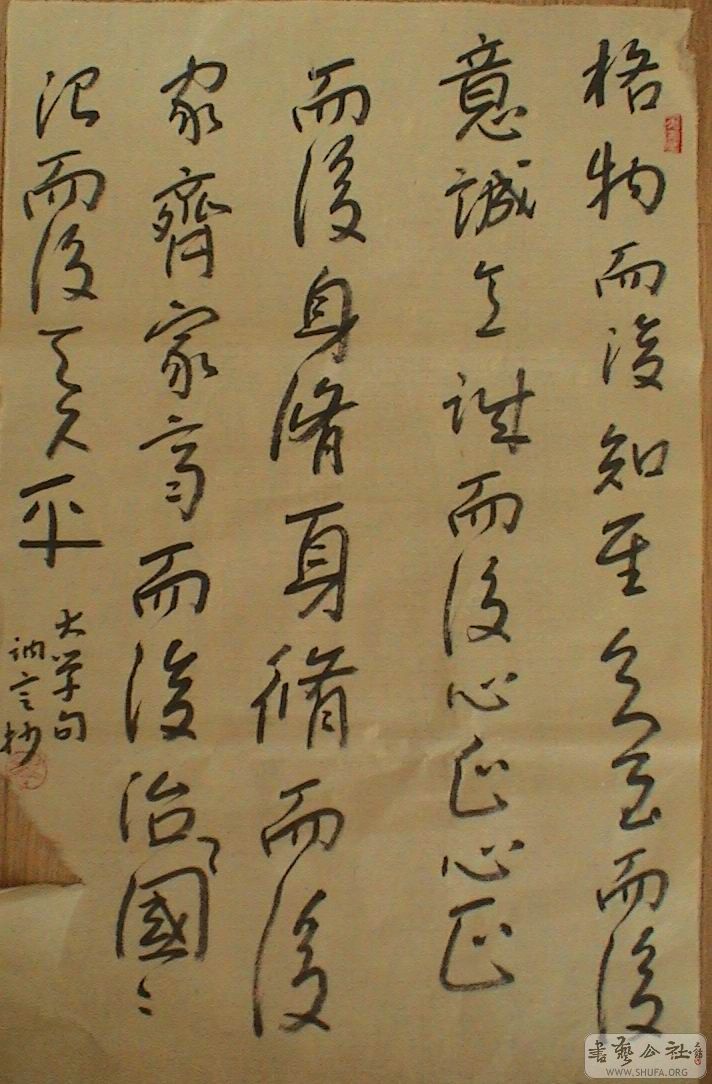 格物而後知至知至而後
意誠意誠而後心正心正
而後身脩身脩而後
家齊家齊而後治國〻
治而後天下平
大学句
訥言抄
書藝公社
WWW.SHUFA.ORG